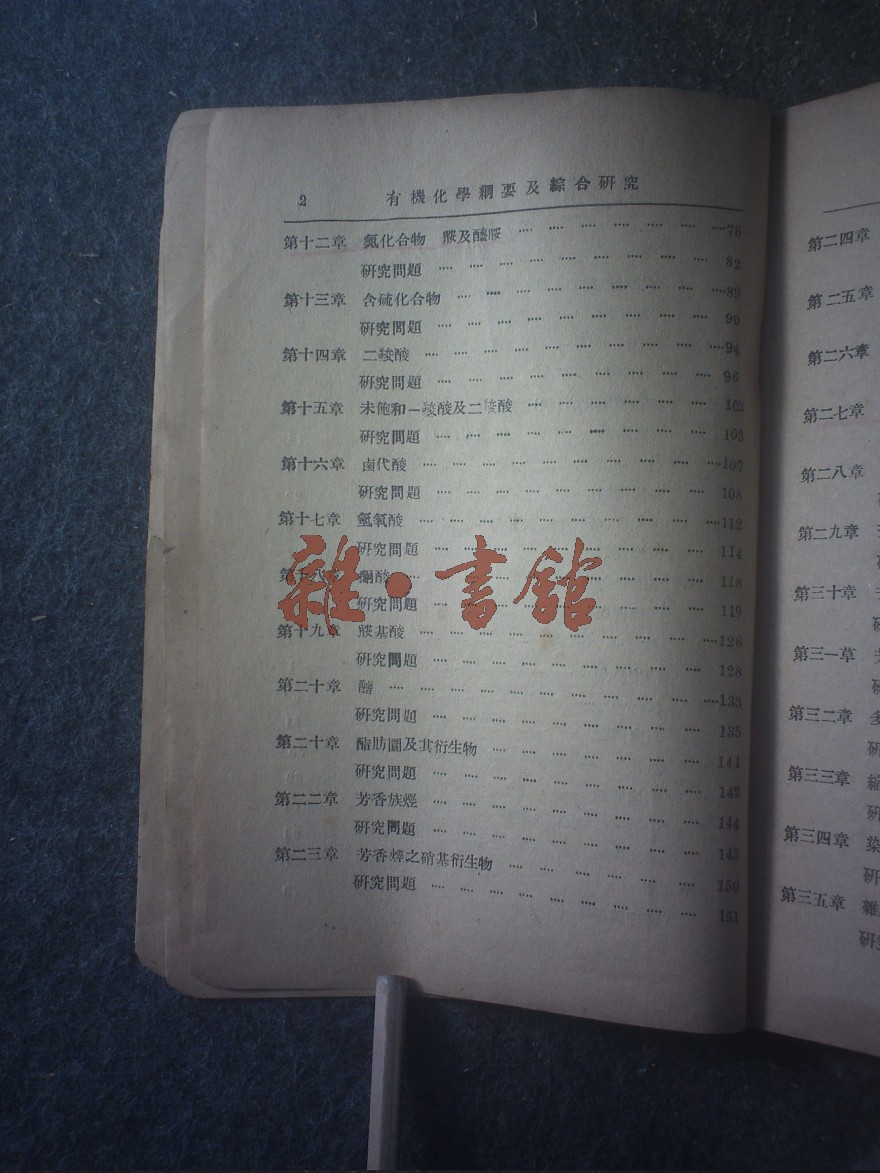 2 有機化學綱要及綜合研究
第十二章 氮化合物 胺及醯胺 ‥‥ 78
研究問題 ‥‥ 82
第十三章 含硫化合物 ‥‥ 89
研究問題 ‥‥ 90
第十四章 二羧酸 ‥‥ 94
研究問題 ‥‥ 96
第十五章 未飽和一羧酸及二羧酸 ‥‥ 102
研究問題 ‥‥ 103
第十六章 鹵代酸 ‥‥ 107
研究問題 ‥‥ 108
第十七章 氫氧酸 ‥‥ 112
研究問題 ‥‥ 114
第十八章 酮酸 ‥‥ 118
研究問題 ‥‥ 119
第十九章 胺基酸 ‥‥ 126
研究問題 ‥‥ 128
第二十章 ‥‥ 133
研究問題 ‥‥ 135
第二十章 酯肪圜及其衍生物 ‥‥ 141
研究問題 ‥‥ 142
第二二章 芳香族烴 ‥‥ 144
研究問題 ‥‥ 145
第二三章 芳香烴之硝基衍生物 ‥‥ 150
研究問題 ‥‥ 151
雜·書館
第二四章
第二五章
第二六章
第二七章
第二八章
第二九章
第三十章
第三一草
第三二章 多
第三三章
第三四章 染
第三五章 雜